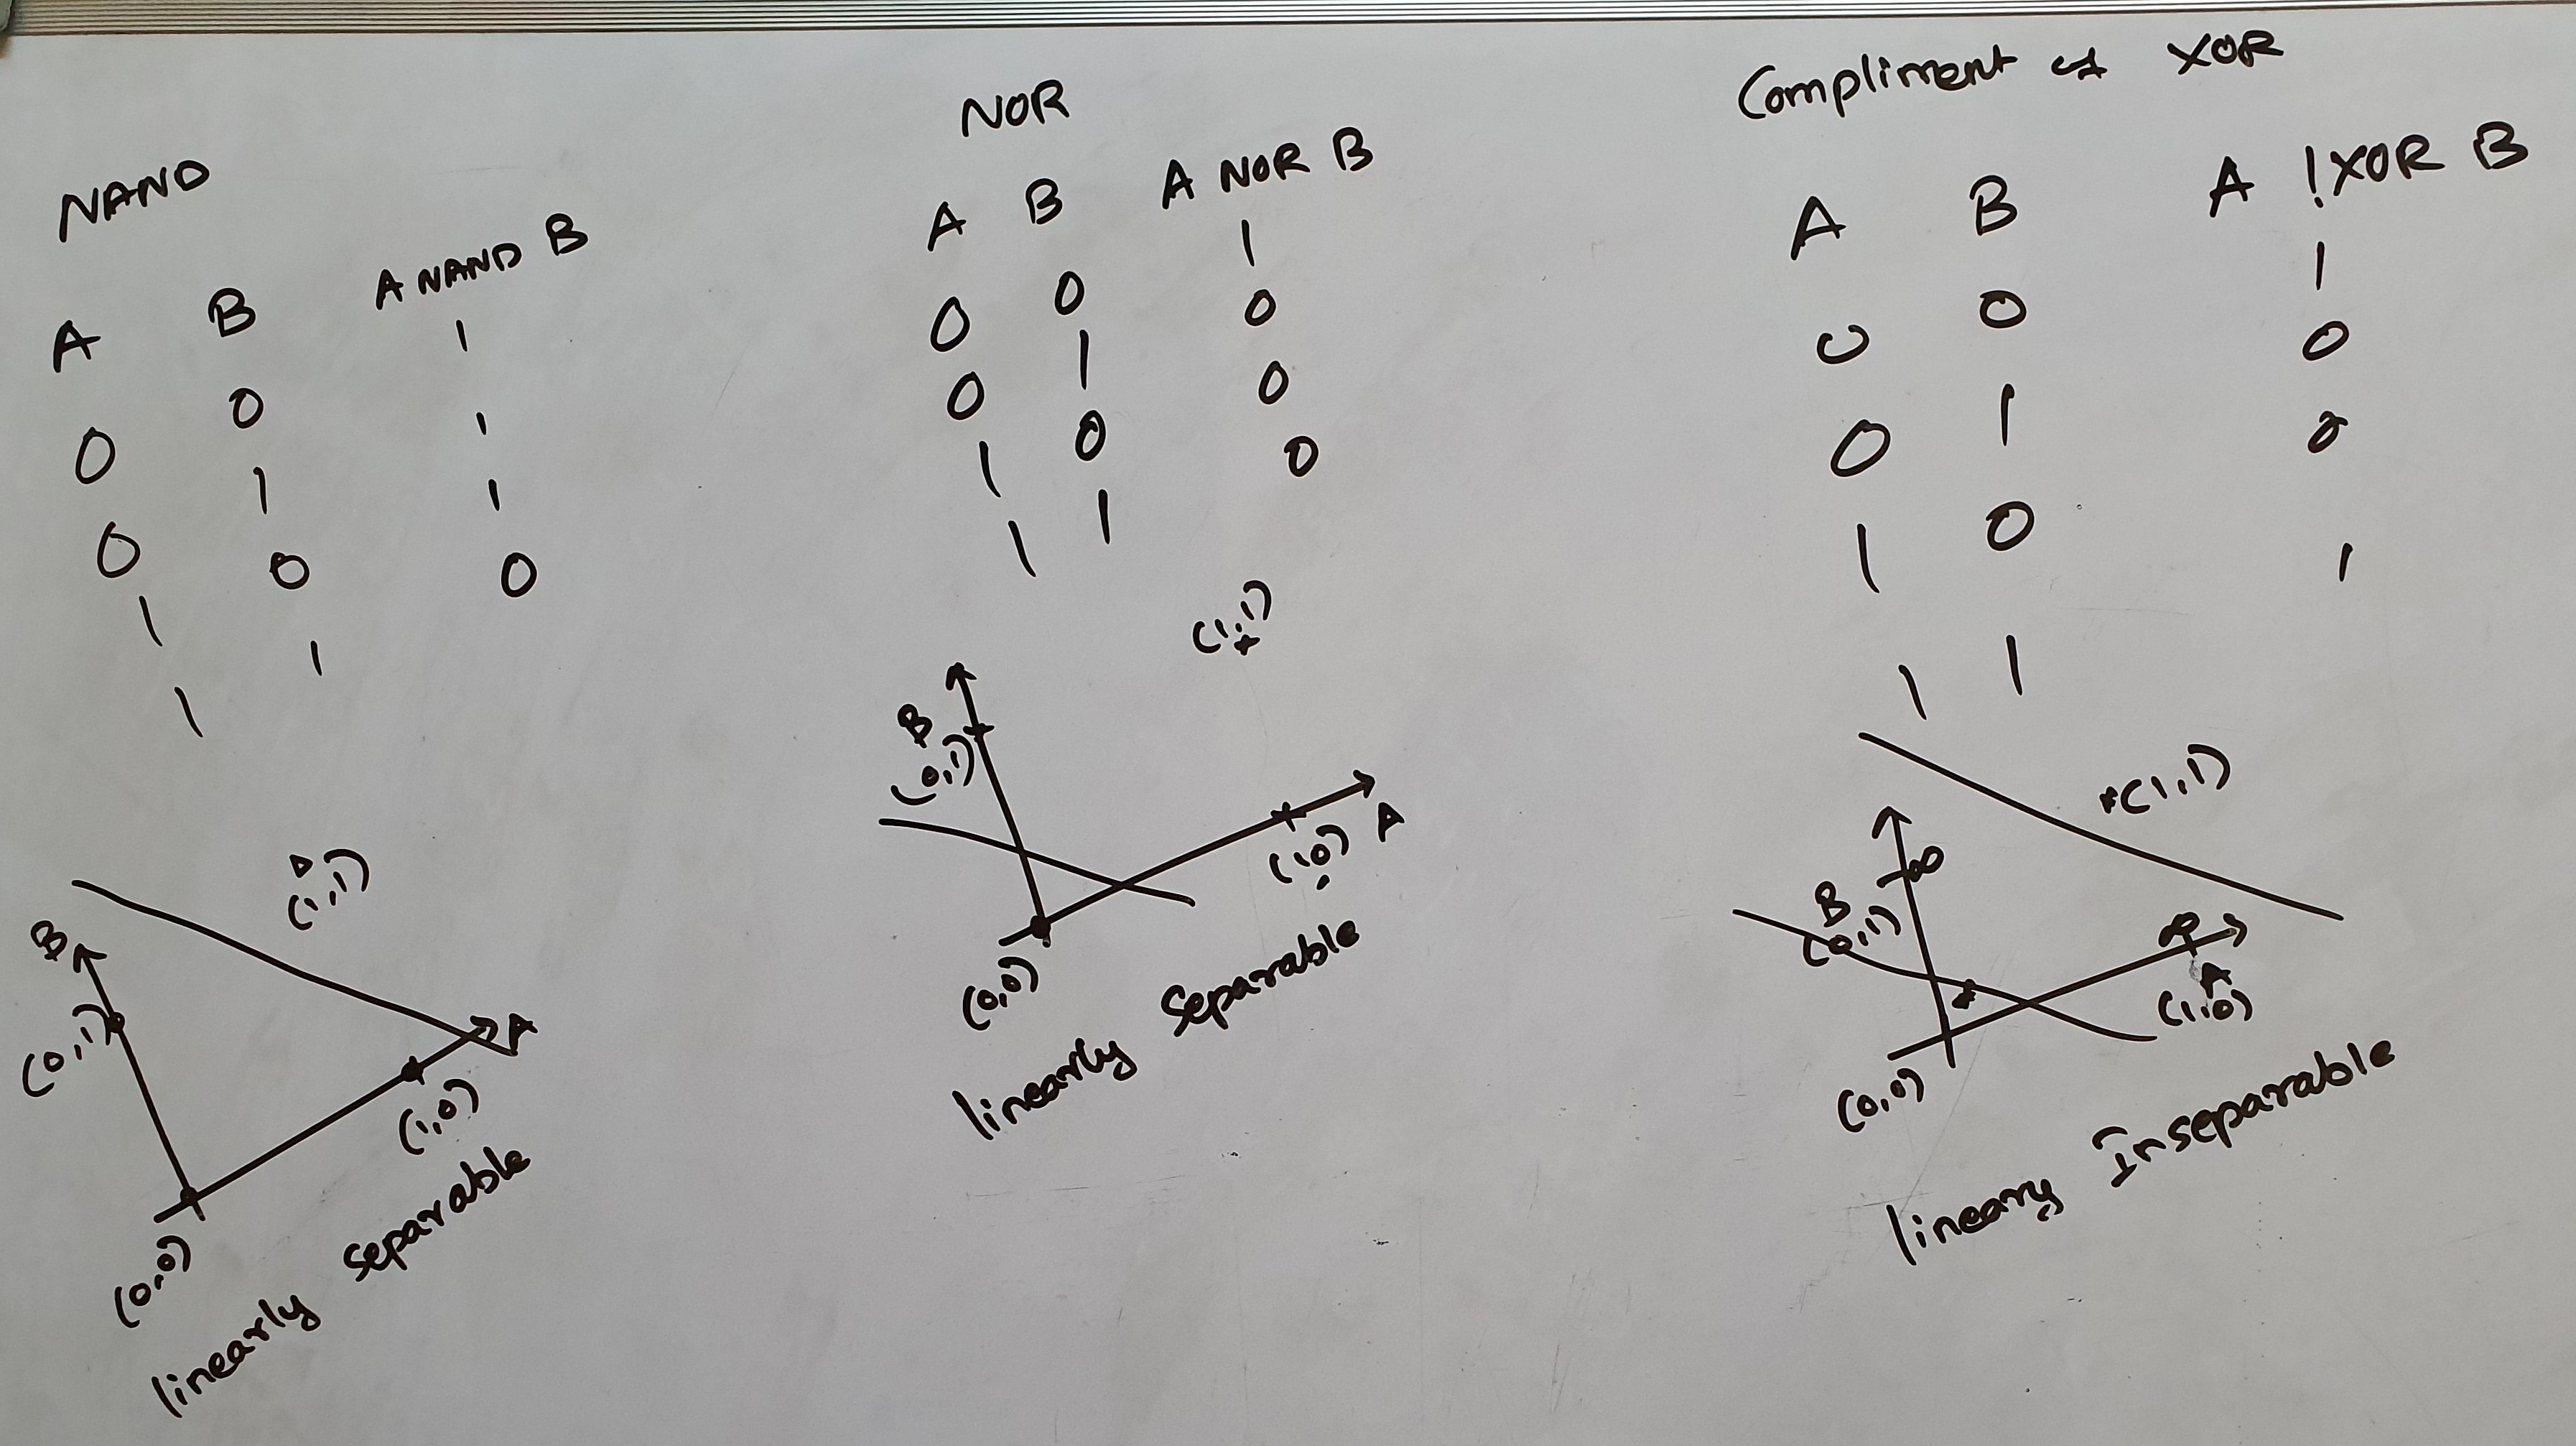 NAND
A B A NAND B
0 0 1
0 1 1
1 0 1
1 1 0
B
(0,1)
(1,1)
A
(1,0)
(0,0)
linearly separable
NOR
A B A NOR B
0 0 1
0 1 0
1 0 0
1 1 0
(1,1)
B
(0,1)
A
(1,0)
(0,0)
linearly Separable
Compliment of XOR
A B A !XOR B
0 0 1
0 1 0
1 0 0
1 1 1
(1,1)
B
(0,1)
A
(1,0)
(0,0)
lineary Inseparable